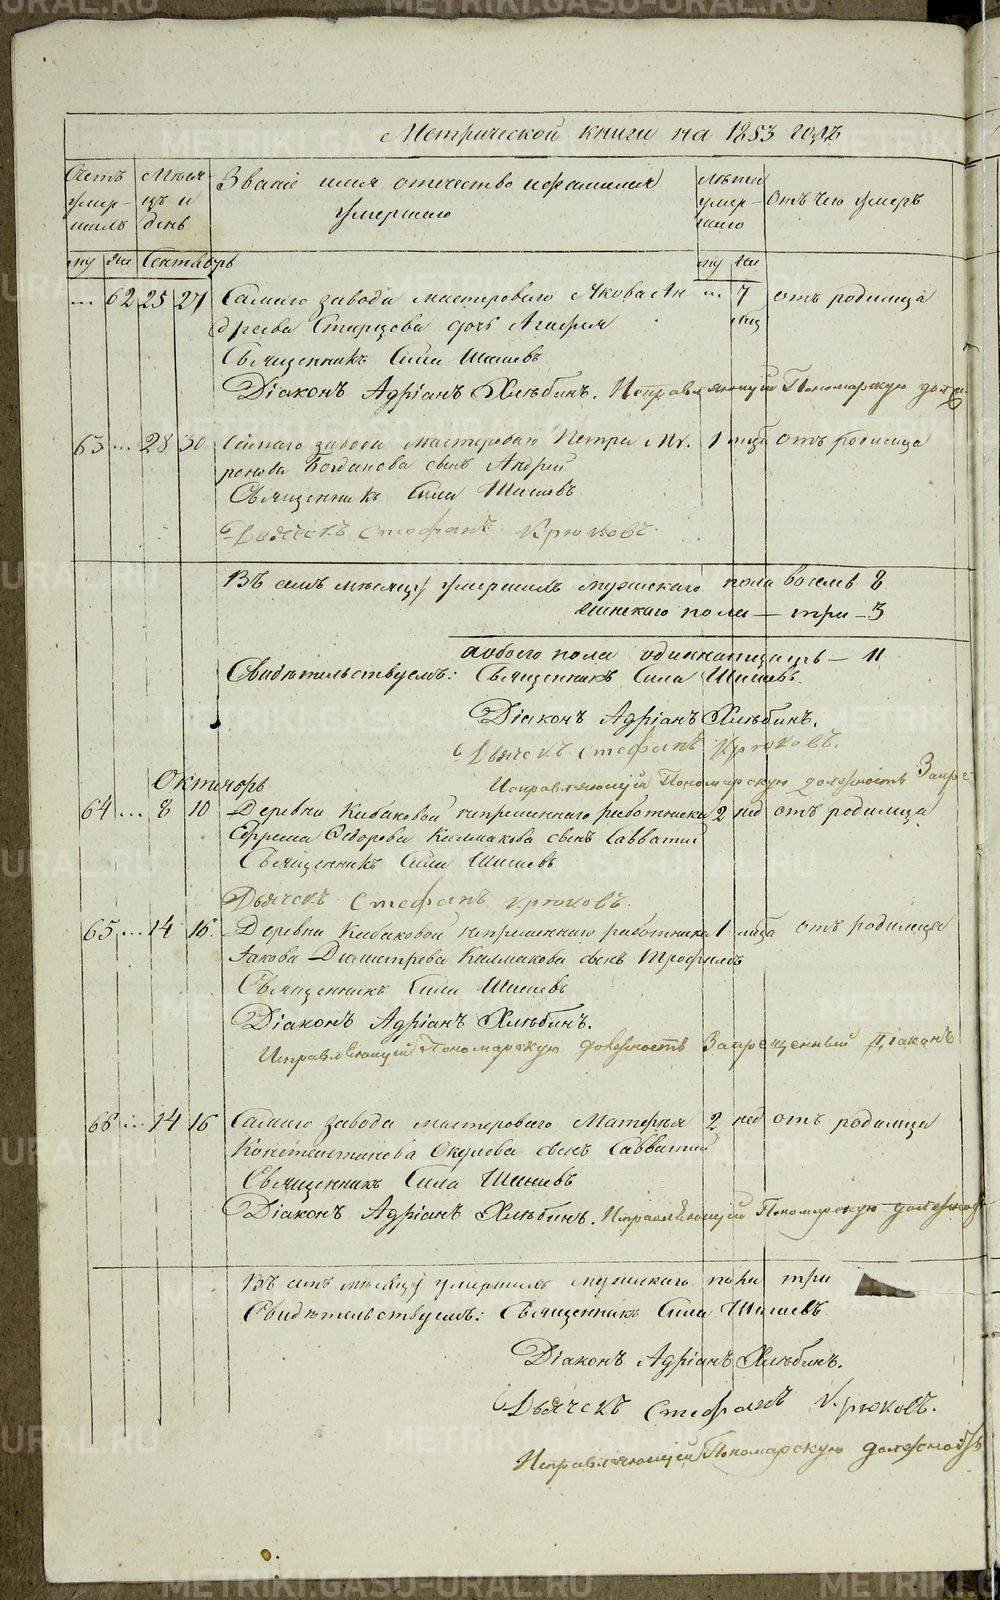 Метрической книги на 1853 годъ
Счетъ умер-шихъ
Месяцъ и день
Званіе имя, отчество и фамилія умершаго
лѣта умер-шаго
Отъ чего умеръ
му же Сентябрь му же
... 62 25 27 Самаго завода мастероваго Якова Ан ... 7 отъ родимца
дреева Старцова дочь Агафия мсц
Священникъ Сила Шишевъ
Діаконъ Адріанъ Хлѣбинъ. Исправляющій Пономарскую долж
63 ... 28 30 Самаго завода мастероваго Петра Ми 1 мца отъ родимца
ронова Богданова сынъ Андрей
Священникъ Сила Шишевъ
Дьячекъ Стефанъ Крюковъ.
Въ семъ месяцѣ умершихъ мужескаго пола восемь 8
женскаго пола — три — 3
а обоего пола одиннатцать — 11
Свидѣтельствуемъ: Священникъ Сила Шишевъ.
Діаконъ Адріанъ Хлѣбинъ.
Дьячекъ Стефанъ Крюковъ.
Исправляющій Пономарскую должность Запре
Октябрь
64 ... 8 10 Деревни Кабаковой непременнаго работника 2 нед отъ родимца
Ефрема Федорова Калмакова сынъ Савватий
Священникъ Сила Шишевъ
Дьячекъ Стефанъ Крюковъ.
65 ... 14 16 Деревни Кабаковой непременнаго работника 1 мца отъ родимца
Іакова Димитрева Калмакова сынъ Трофимъ
Священникъ Сила Шишевъ
Діаконъ Адріанъ Хлѣбинъ.
Исправляющій Пономарскую должность Запрещенный Діаконъ
66 ... 14 16 Самаго завода мастероваго Матфея 2 нед отъ родимца
Константинова Окулова сынъ Савватий
Священникъ Сила Шишевъ
Діаконъ Адріанъ Хлѣбинъ. Исправляющій Пономарскую должност
Въ семъ месяцѣ умершихъ мужескаго пола три
Свидѣтельствуемъ: Священникъ Сила Шишевъ
Діаконъ Адріанъ Хлѣбинъ.
Дьячекъ Стефанъ Крюковъ.
Исправляющій Пономарскую должность
METRIKI.GASO-URAL.RU